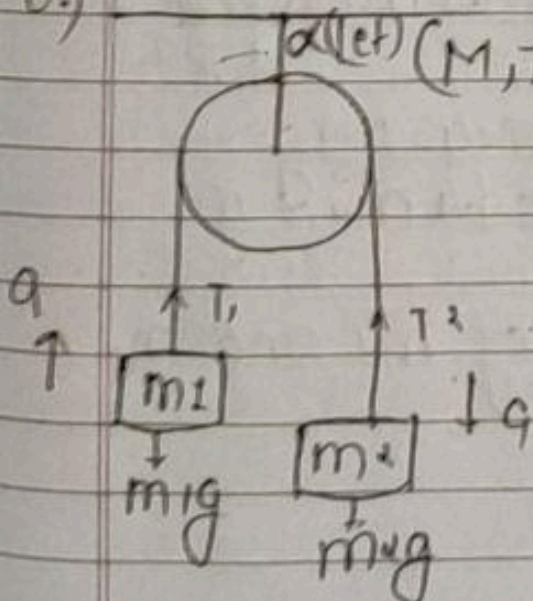 α(let) (M,
a
T1
T2
m1
m2
a
m1g
m2g